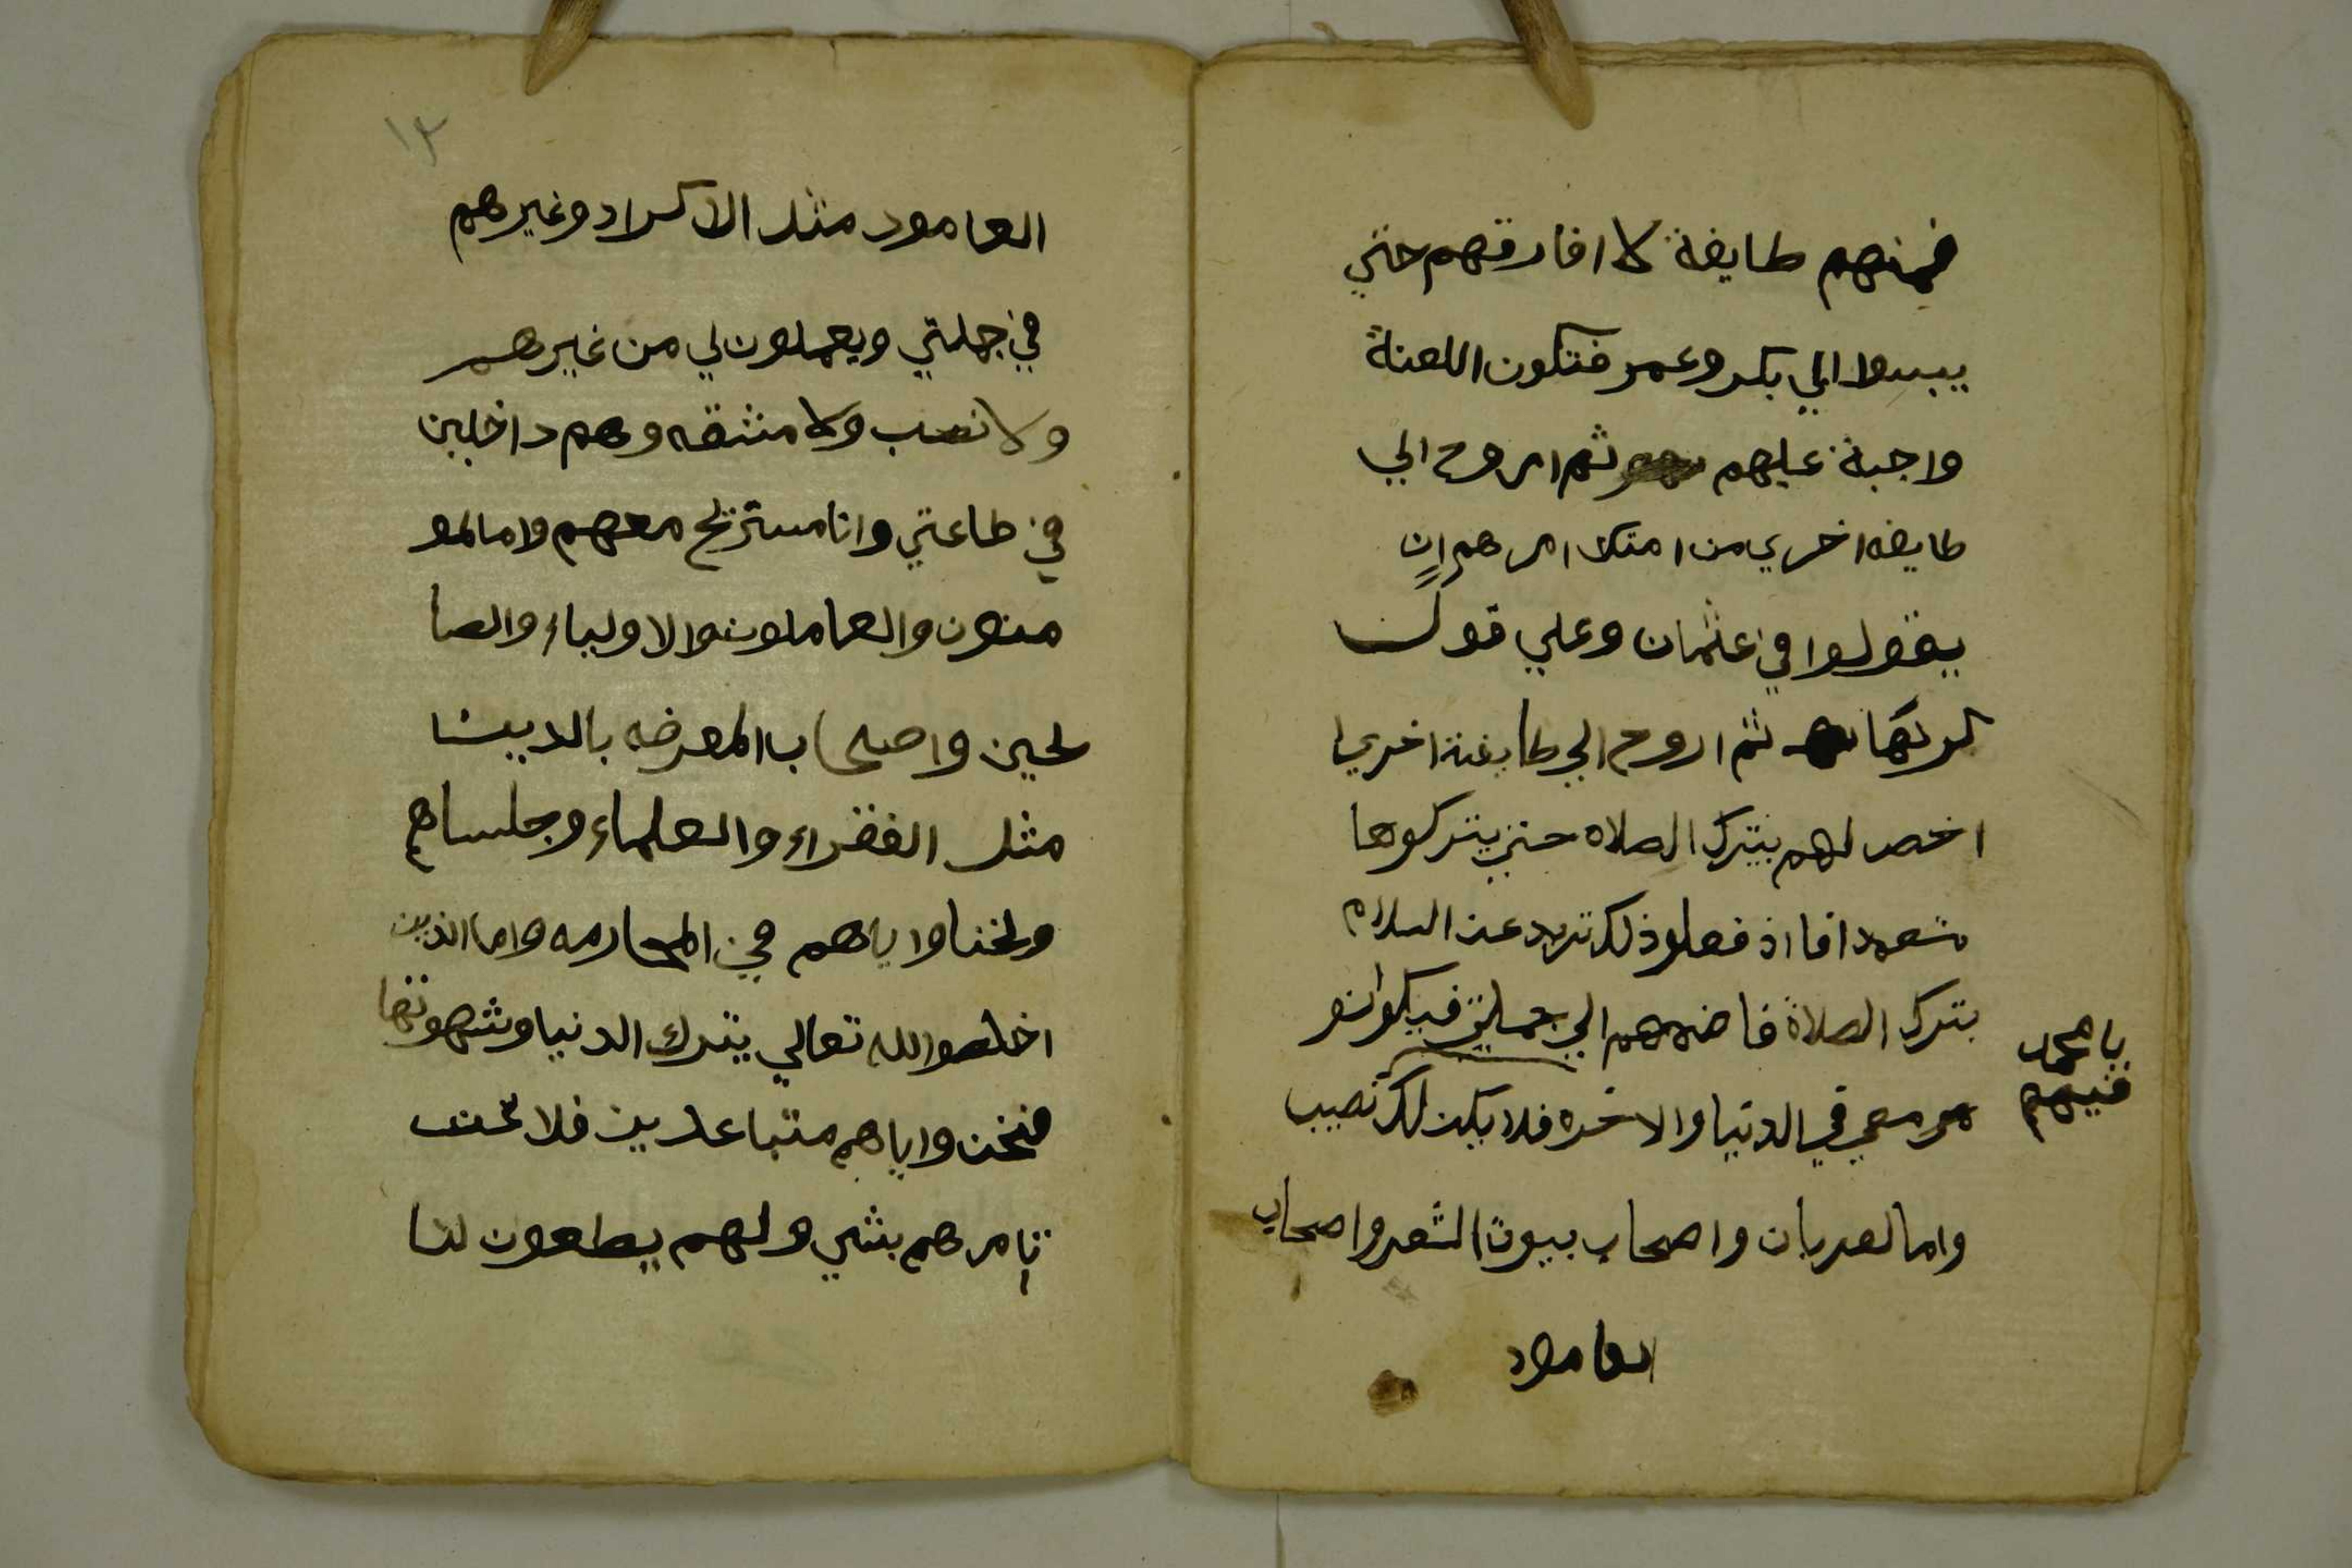 فمنهم طايفة لا افارقهم حتي
يسبوا ابي بكر وعمر فتكون اللعنة
واجبة عليهم ثم اروح الي
طايفه اخري من امتك امرهم ان
يقولوا في عثمان وعلي قولا
ثم اروح الي طايفة اخري
لهم بترك الصلاه حتي يتركوها
فاذ فعلو ذلك عن السلام
بترك الصلاة فاضمهم الي جملتي فيكوانو
يا محمد
معي في الدنيا والاخره فلا يكن لك فيهم نصيب
واما لعربان واصحاب بيوت الشعر واصحاب
العامود
١٣
العامود مثل الاكراد وغيرهم
في جملتي ويعملون لي من غيرهم
ولا تعب ولا مشقه وهم داخلين
في طاعتي وانا مستريح معهم واما لمو
منون والعاملون والاولياء والصا
لحين واصحاب المعرفه بالدينا
مثل الفقراء والعلماء وجلساهم
ونحنا واياهم في المحاربه واما الذين
اخلصوا لله تعالي بترك الدنيا وشهوتها
فنحن واياهم متباعدين فلا نحن
نامرهم بشي ولهم يطعون لنا